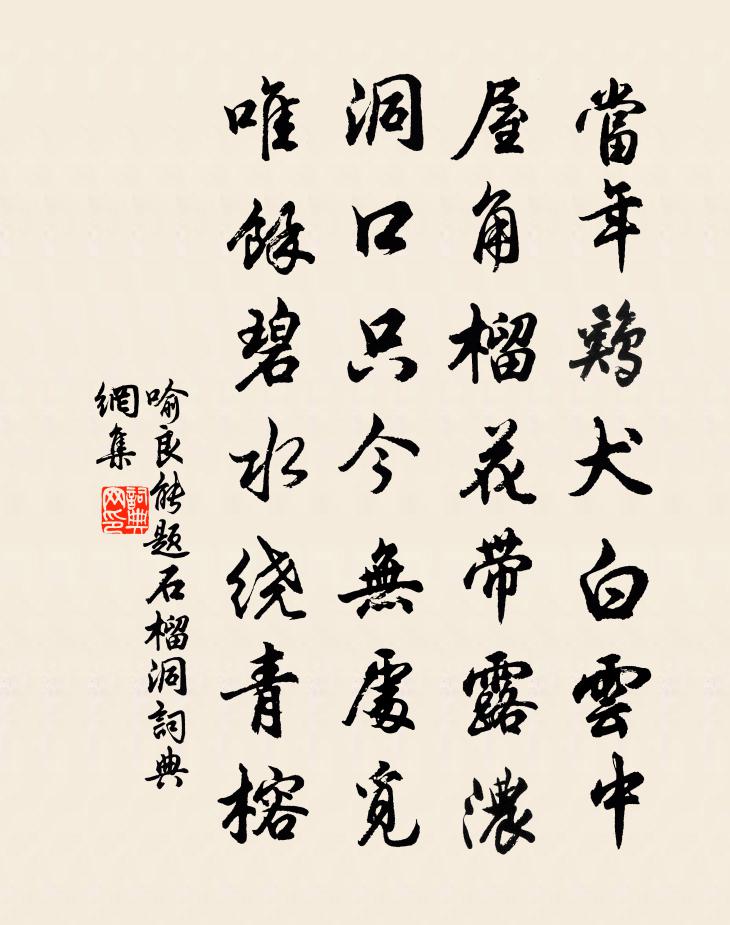 當年鷄犬白雲中
屋角榴花带露濃
洞口只今無處覓
唯餘碧水绕青榕
喻良能题石榴洞詞典
網集
詞典
网印